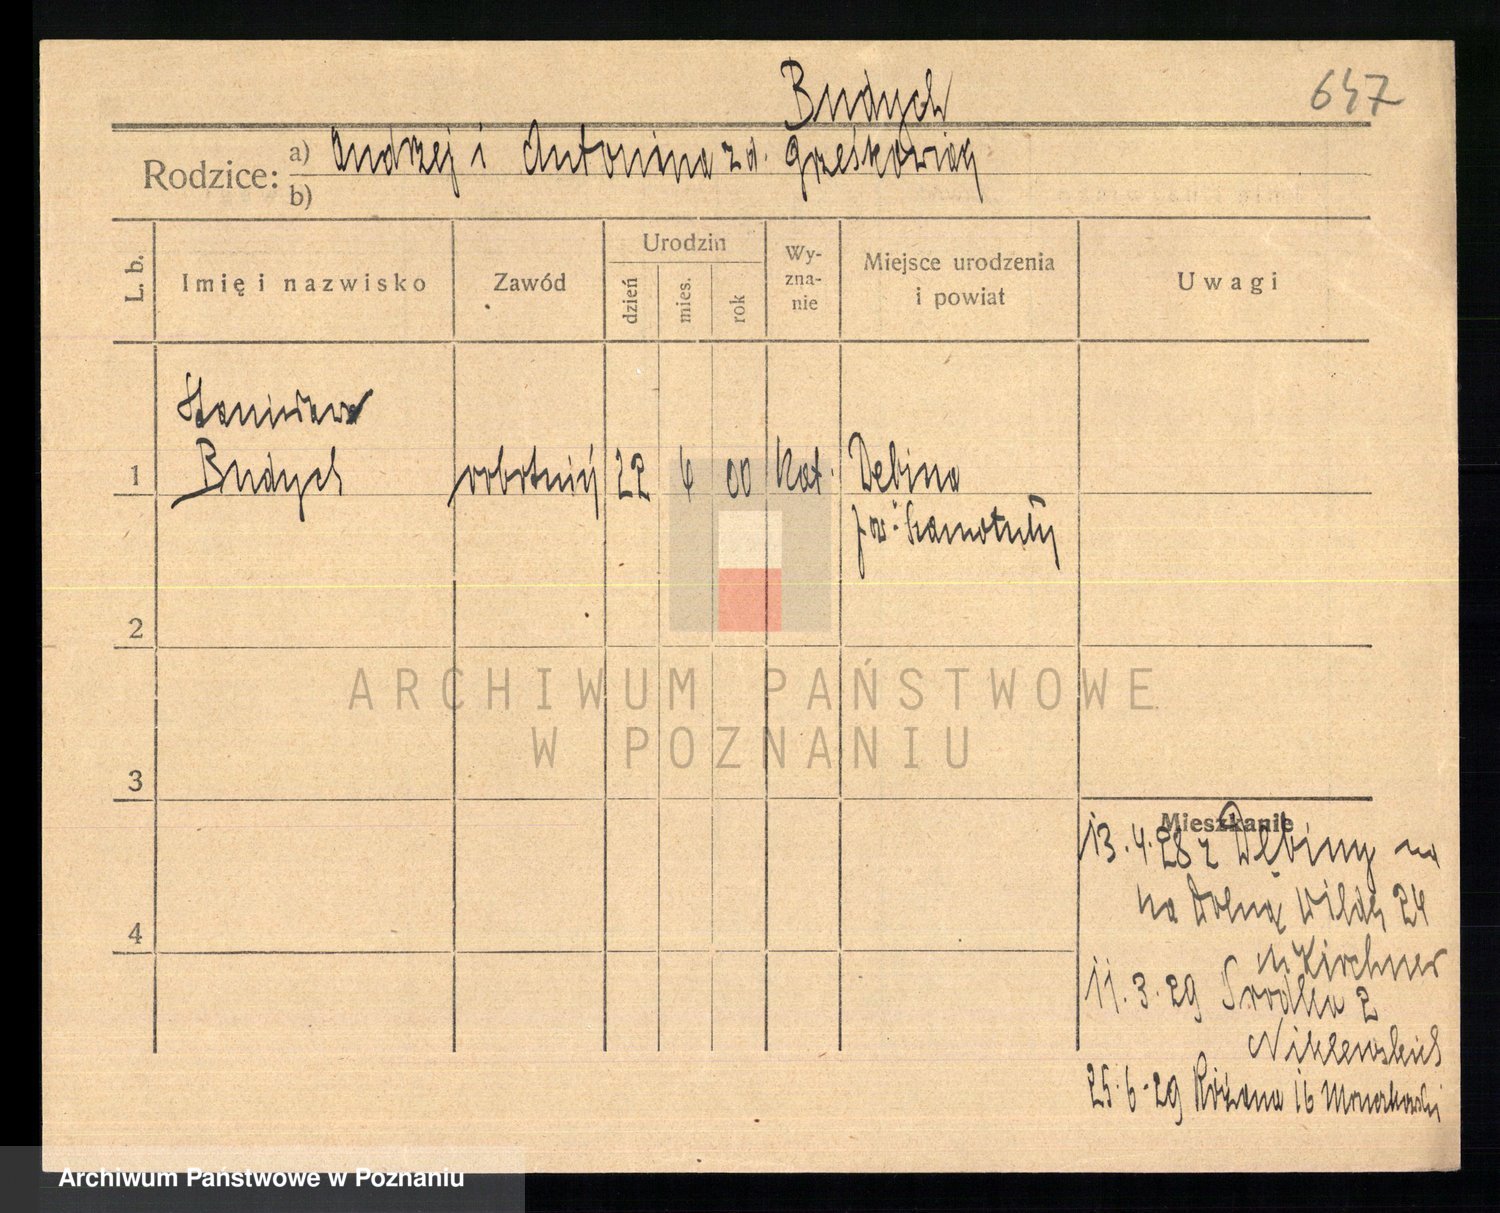 Budych
647
Rodzice:
a) Andrzej i Antonina z d. Grześkowiak
b)
L. b.
Imię i nazwisko
Zawód
Urodzin
dzień
mies.
rok
Wy-
zna-
nie
Miejsce urodzenia
i powiat
Uwagi
Stanisław
1 Budych robotnik 22 4 00 kat. Dębina
pow. Szamotuły
2
3
4
Mieszkanie
13.4.28 z Dębiny na
na Dolną Wildę 24
u Kirchner
11.3.29 Śródka 2
25.6.29 Różana 16
ARCHIWUM PAŃSTWOWE
W POZNANIU
Archiwum Państwowe w Poznaniu